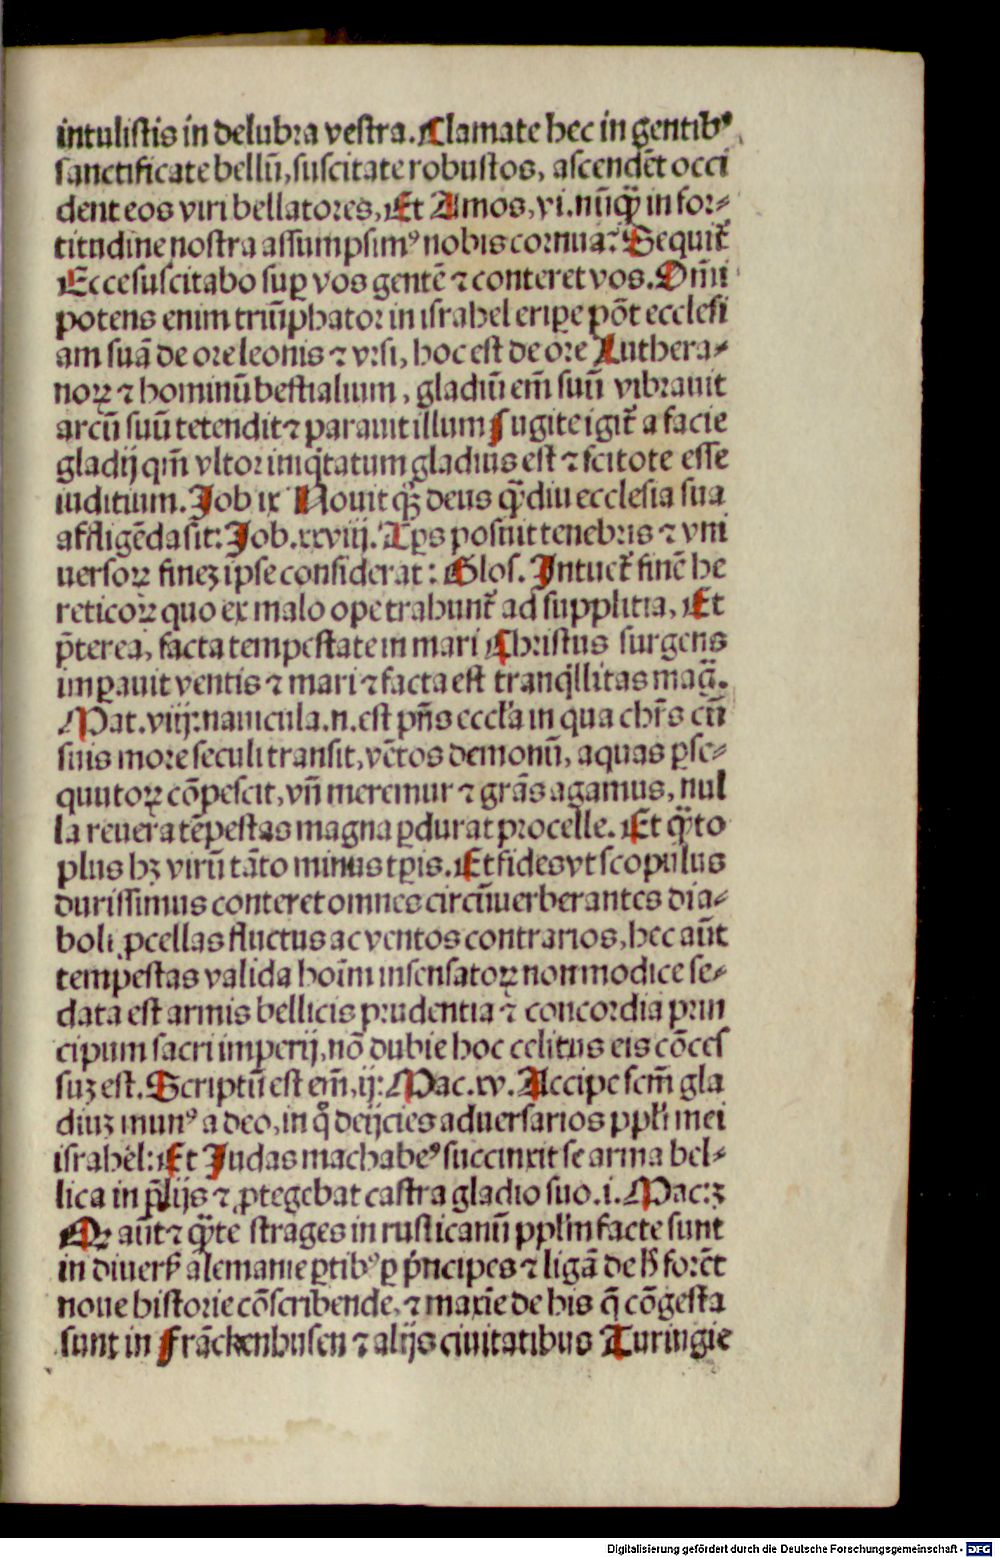 intulistis in delubra vestra. Clamate hec in gentibꝰ
sanctificate bellū, suscitate robustos, ascendēt occi
dent eos viri bellatores, Et Amos, vi. nūꝗ̈ in for⸗
titudine nostra assumpsimꝰ nobis cornua? Sequit᷑
Ecce suscitabo suꝑ vos gentē ⁊ conteret vos. Om̄i
potens enim triūphator in israhel eripe pōt ecclesi
am suā de ore leonis ⁊ vrsi, hoc est de ore Luthera⸗
noꝝ ⁊ hominū bestialium, gladiū em̄ suū vibrauit
arcū suū tetendit ⁊ parauit illum Fugite igit᷑ a facie
gladij qm̄ vltor iniq̇tatum gladius est ⁊ scitote esse
iuditium. Job ix Nouit qꝫ deus ꝗ̈diu ecclesia sua
affligēda sit: Job. xxviij. Tꝑs posuit tenebris ⁊ vni
uersoꝝ finez ipse considerat: Glos. Intuet᷑ finē he
reticoꝝ quo ex malo ope trahunt᷑ ad supplitia, Et
p̄terea, facta tempestate in mari Christus surgens
imꝑauit ventis ⁊ mari ⁊ facta est tranq̇llitas mag̃.
Mat. viij: nauicula .n. est pn̄s eccl'a in qua chr̄s cū
suis more seculi transit, vētos demonū, aquas ꝑse⸗
quutoꝝ cōpescit, vn̄ meremur ⁊ grās agamus, nul
la reuera tēpestas magna ꝑdurat procelle. Et ꝗ̈to
plus hꝫ virū tāto minus tꝑis. Et fides vt scopulus
durissimus conteret omnes circūuerberantes dia⸗
boli ꝓcellas fluctus ac ventos contrarios, hec aūt
tempestas valida hoīm insensatoꝝ non modice se⸗
data est armis bellicis prudentia ⁊ concordia prin
cipum sacri imperij, nō dubie hoc celitus eis cōces
suꝫ est. Scriptū est em̄, ij: Mac. xv. Accipe scm̄ gla
diuꝫ munꝰ a deo, in q̊ deijcies aduersarios ppl'i mei
israhel: Et Judas machabeꝰ succinxit se arma bel⸗
lica in p̄lijs ⁊ ꝓtegebat castra gladio suo. i. Mac: 3
Qꝫ aūt ⁊ ꝗ̈te strages in rusticanū ppl'm facte sunt
in diuers᷑ alemanie ꝑtibꝰ ꝑ pͥncipes ⁊ ligā de h̄ forēt
noue historie cōscribende, ⁊ maxīe de his q̄ cōgesta
sunt in Frāckenhusen ⁊ alijs ciuitatibus Turingie
Digitalisierung gefördert durch die Deutsche Forschungsgemeinschaft - DFG